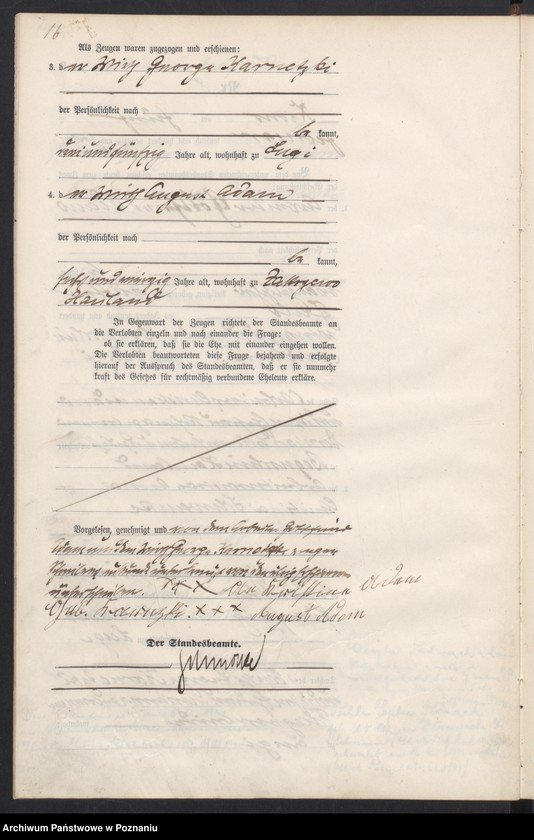 16
Als Zeugen waren zugezogen und erschienen:
3. der Wirth George Karnetzki
der Persönlichkeit nach
be kannt,
und fünfzig Jahre alt, wohnhaft zu Lugi
4. der Wirth August Adam
der Persönlichkeit nach
be kannt,
sechs und vierzig Jahre alt, wohnhaft zu Zakrzewo
Hauland
In Gegenwart der Zeugen richtete der Standesbeamte an
die Verlobten einzeln und nach einander die Frage:
ob sie erklären, daß sie die Ehe mit einander eingehen wollen.
Die Verlobten beantworteten diese Frage bejahend und erfolgte
hierauf der Ausspruch des Standesbeamten, daß er sie nunmehr
kraft des Gesetzes für rechtmäßig verbundene Eheleute erkläre.
Vorgelesen, genehmigt und von dem
Adam und dem Wirth George Karnetzki wegen
und von der
unterschrieben. XXX Christina Adam
XXX August Adam
Der Standesbeamte.
Archiwum Państwowe w Poznaniu